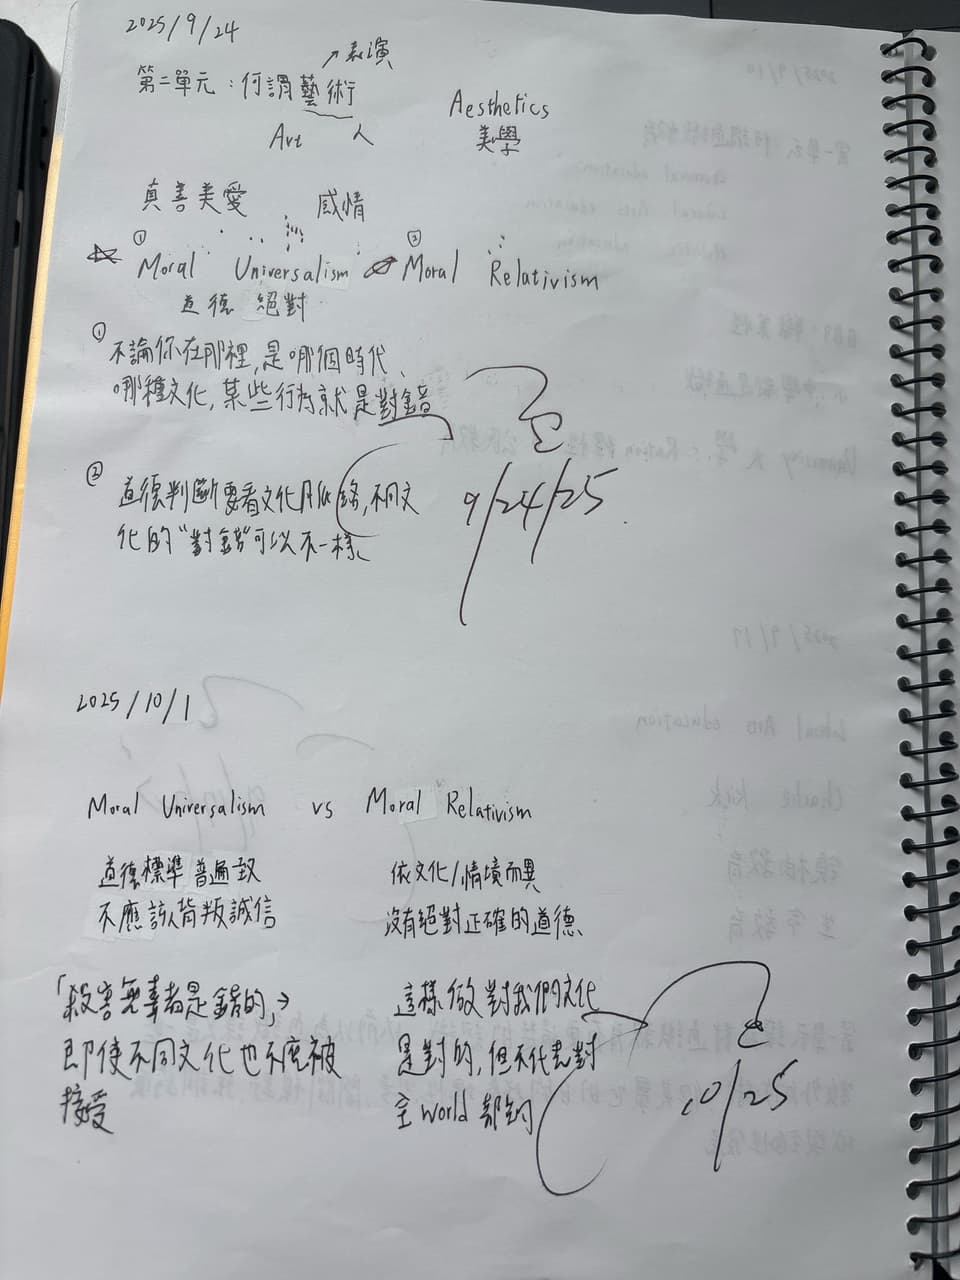 2025/9/24
↗表演
第二單元：何謂藝術
Art 人
Aesthetics
美學
真善美愛 感情
① ②
☆ Moral Universalism Moral Relativism
道德 絕對
① 不論你在那裡,是哪個時代、
哪種文化,某些行為就是對錯
② 道德判斷要看文化脈絡,不同文
化的“對錯”可以不一樣、
9/24/25
2025/10/1
Moral Universalism vs Moral Relativism
道德標準普遍致
不應該背叛誠信
依文化/情境而異
沒有絕對正確的道德
「殺害無辜者是錯的,→
即使不同文化也不應被
接受
這樣做對我們文化
是對的,但不代表對
全world 都